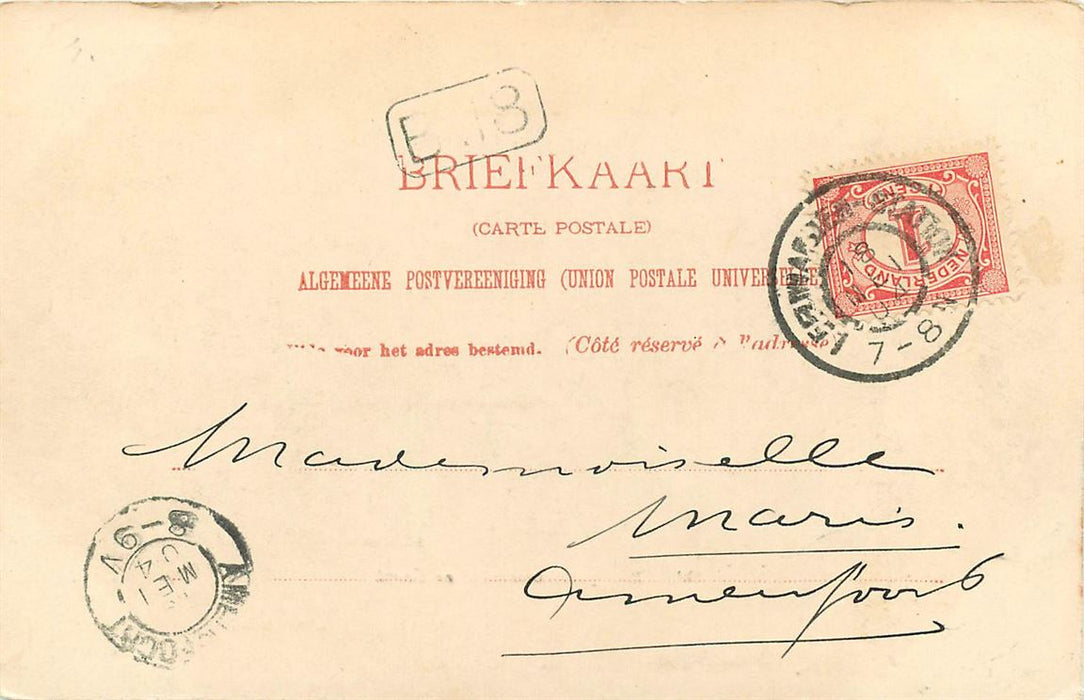 B 18
BRIEFKAART
(CARTE POSTALE)
ALGEMEENE POSTVEREENIGING (UNION POSTALE UNIVERSELLE
voor het adres bestemd. (Côté réservé à l'adresse
NEDERLAND
1
CENT
LEEUWARDEN-STATION
7-8 N
Mademoiselle
Maris.
Amersfoort
AMERSFOORT
8-9 V
MEI